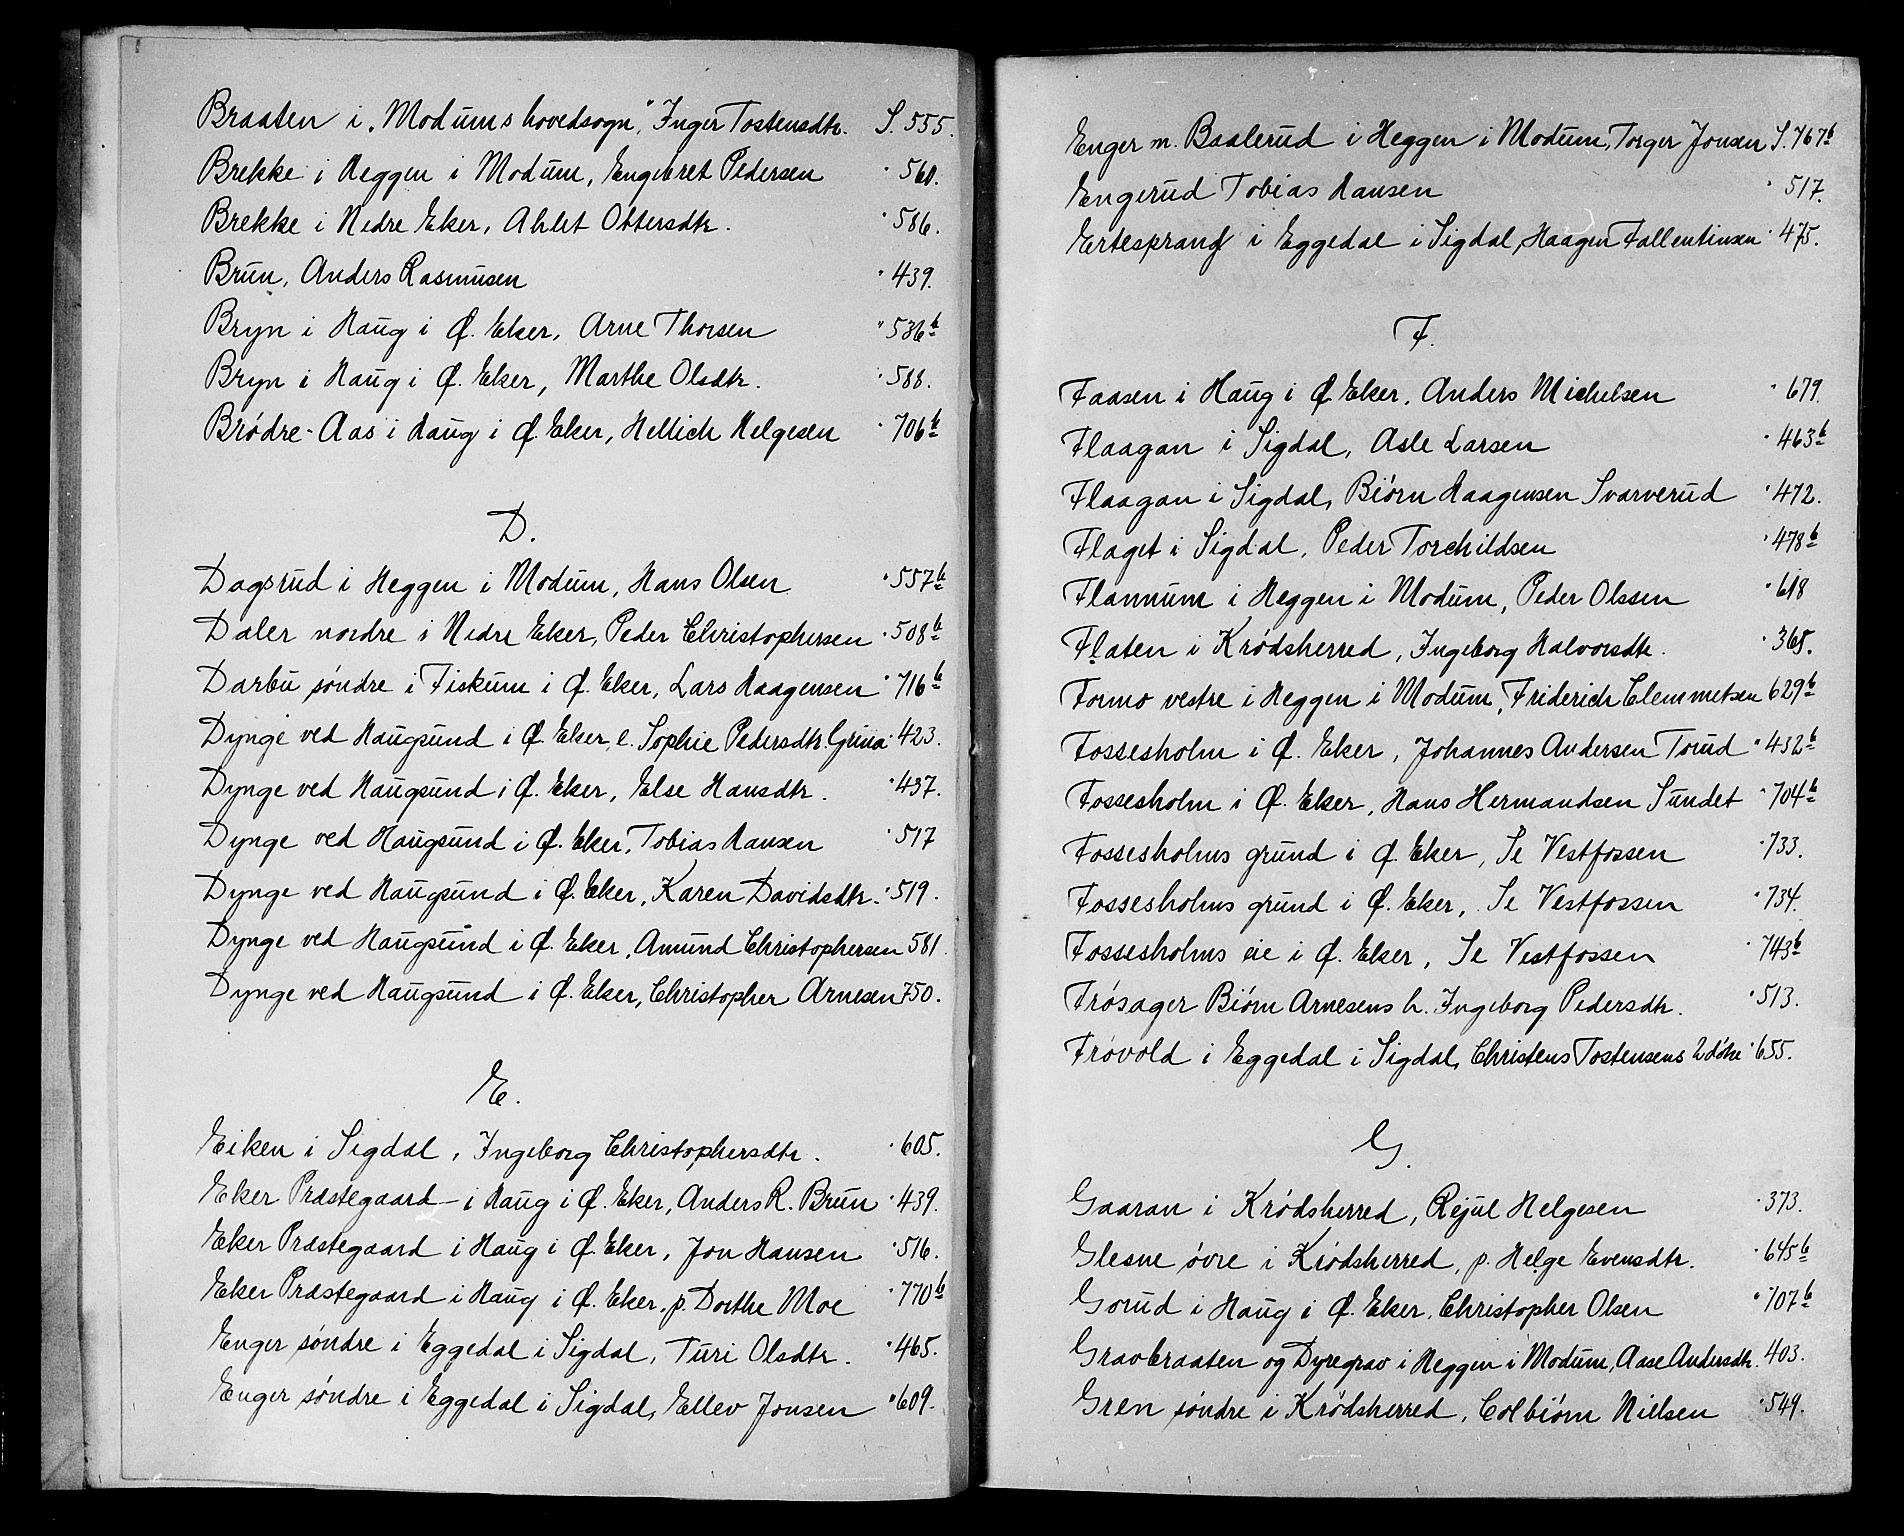 Braaten i „Modums hovedsogn”, Inger Tostensdtr. S. 555.
Brekke i Heggen i Modum, Engebret Pedersen " 560.
Brekke i Nedre Eker, Ahlet Ottersdtr. " 586.
Brun, Anders Rasmusen " 439.
Bryn i Haug i Ø. Eker, Arne Thorsen " 536b
Bryn i Haug i Ø. Eker, Marthe Olsdtr. " 588.
Brødre-Aas i Haug i Ø. Eker, Hellich Helgesen " 706b
D.
Dagsrud i Heggen i Modum, Hans Olsen " 557b
Daler nordre i Nedre Eker, Peder Christophersen " 508b
Darbu søndre i Fiskum i Ø. Eker, Lars Haagensen " 716b
Dynge ved Haugsund i Ø. Eker, e. Sophie Pedersdtr. Griia " 423.
Dynge ved Haugsund i Ø. Eker, Else Hansdtr. " 437.
Dynge ved Haugsund i Ø. Eker, Tobias Hansen " 517
Dynge ved Haugsund i Ø. Eker, Karen Davidsdtr. " 519.
Dynge ved Haugsund i Ø. Eker, Amund Christophersen 581.
Dynge ved Haugsund i Ø. Eker, Christopher Arnesen 750.
E.
Eiken i Sigdal, Ingeborg Christophersdtr. " 605.
Eker Præstegaard i Haug i Ø. Eker, Anders R. Brun " 439.
Eker Præstegaard i Haug i Ø. Eker, Jon Hansen " 516.
Eker Præstegaard i Haug i Ø. Eker, p. Dorthe Moe " 770b
Enger søndre i Eggedal i Sigdal, Turi Olsdtr. " 465.
Enger søndre i Eggedal i Sigdal, Ellev Jonsen " 609.
Enger m. Baalerud i Heggen i Modum, Torger Jonsen S. 767b
Engerud Tobias Hansen " 517.
Ertesprang i Eggedal i Sigdal, Haagen Fallentinsen " 475.
F.
Faasen i Haug i Ø. Eker, Anders Michelsen " 679.
Flaagan i Sigdal, Asle Larsen " 463b
Flaagan i Sigdal, Biørn Haagensen Svarverud " 472.
Flaget i Sigdal, Peder Torchildsen " 478b
Flannum i Heggen i Modum, Peder Olssen " 618
Flaten i Krødsherred, Ingeborg Halvorsdtr. " 368.
Formo vestre i Heggen i Modum, Friderich Clemmetsen 629b
Fossesholm i Ø. Eker, Johannes Andersen Torud " 432b
Fossesholm i Ø. Eker, Hans Hermandsen Sundet " 704b
Fossesholms grund i Ø. Eker, Se Vestfossen " 733.
Fossesholms grund i Ø. Eker, Se Vestfossen " 734.
Fossesholms eie i Ø. Eker, Se Vestfossen " 743b
Frøsager Biørn Arnesens h. Ingeborg Pedersdtr. " 513.
Frøvold i Eggedal i Sigdal, Christens Tostensens 2 døtre " 655.
G.
Gaaran i Krødsherred, Rejul Helgesen " 373.
Glesne øvre i Krødsherred, p. Helge Evensdtr. " 645b
Gorud i Haug i Ø. Eker, Christopher Olsen " 707b
Gravbraaten og Dyregrav i Heggen i Modum, Aase Andersdtr. 403.
Gren søndre i Krødsherred, Colbiørn Nielsen " 549.